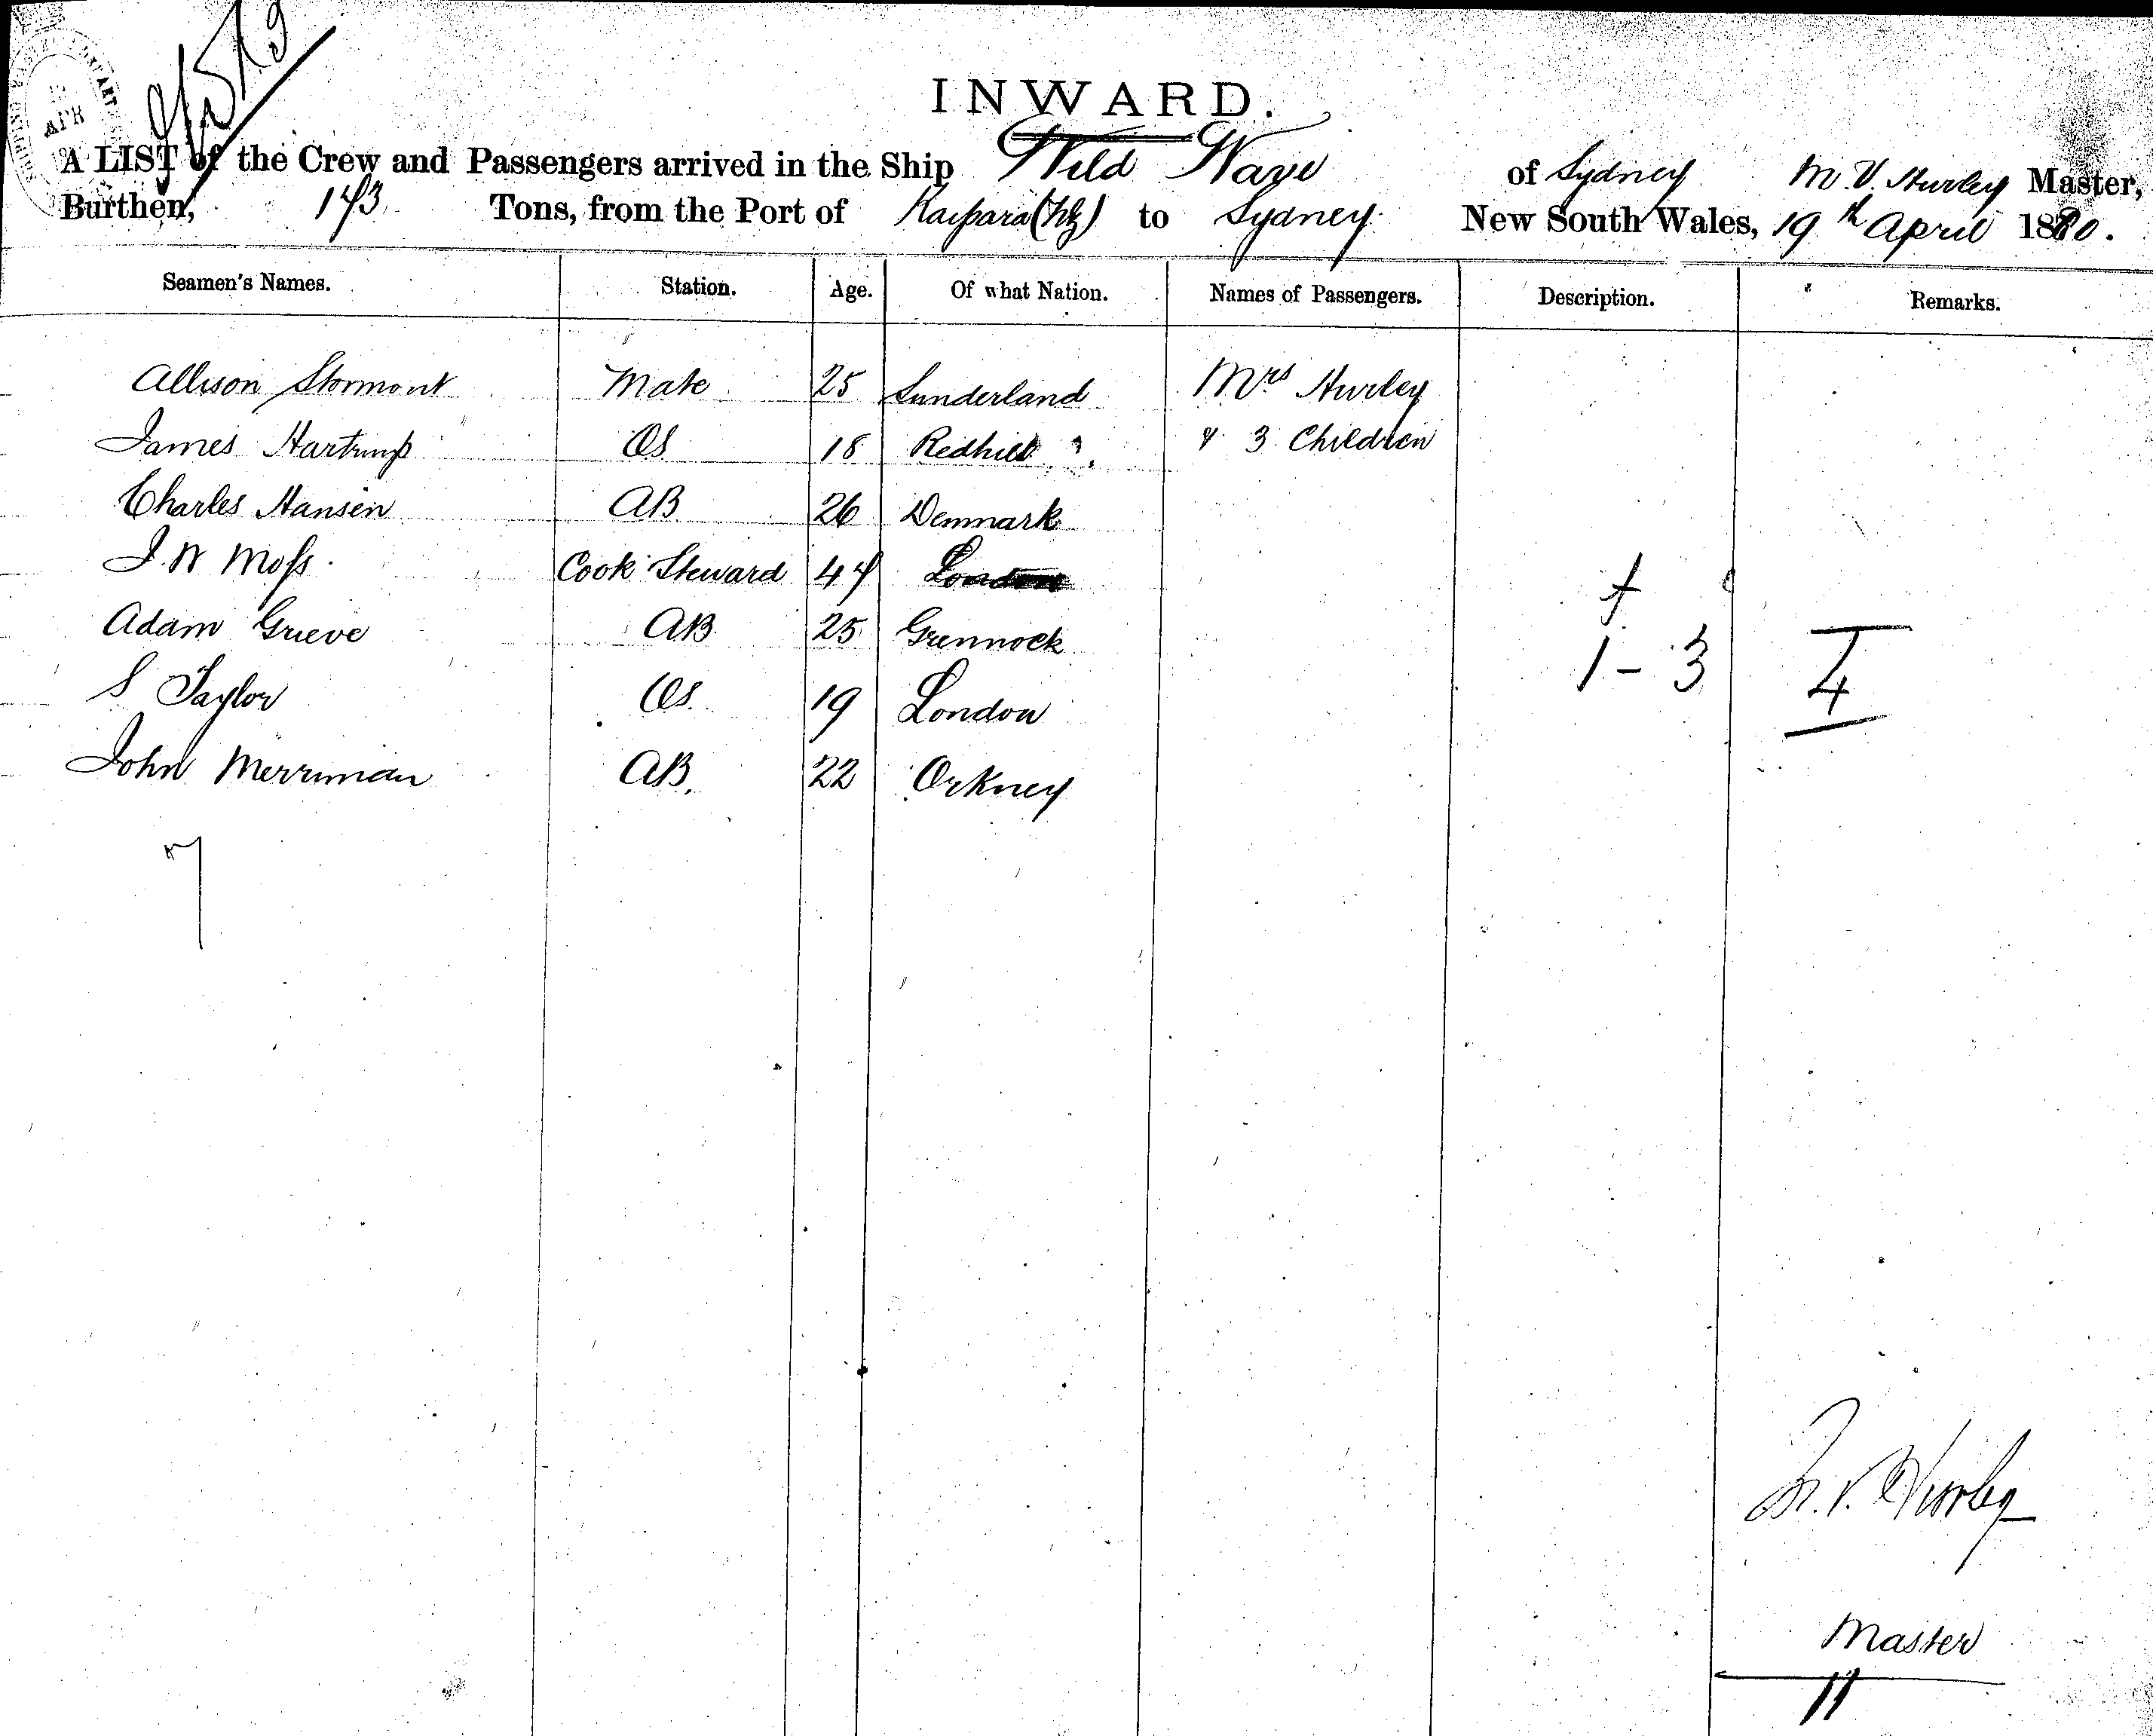 APR
INWARD.
A LIST of the Crew and Passengers arrived in the Ship Wild Wave of Sydney M. V. Hurley Master,
Burthen, 143 Tons, from the Port of Kaipara (NZ) to Sydney. New South Wales, 19th April 1880.
Seamen's Names. Station. Age. Of what Nation. Names of Passengers. Description. Remarks.
Allison Stormont Mate 25 Sunderland Mrs Hurley
James Hartrump OS 18 Redhill & 3 Children
Charles Hansen AB 26 Denmark
J. W Moss. Cook Steward 44 London
Adam Grieve AB 25 Grennock 1 - 3 4
S Taylor OS. 19 London
John Merriman AB. 22 Orkney
7
M. V. Hurley
Master
11